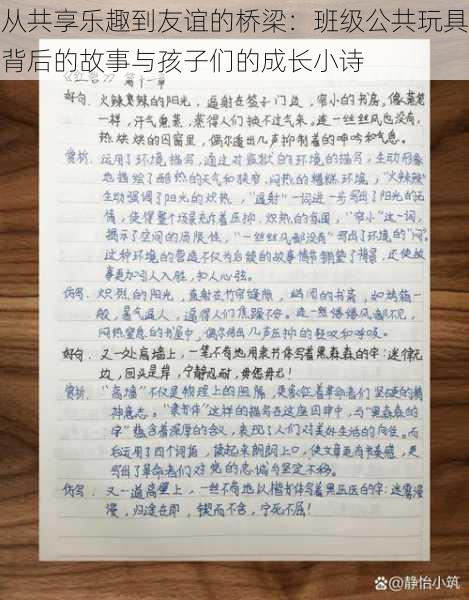 从共享乐趣到友谊的桥梁：班级公共玩具
背后的故事与孩子们的成长小诗
《红岩》 第十一章
好句. 火辣辣的阳光，逼射在签子门边，窄小的书房，像蒸笼
一样，汗气熏蒸，蒸得人们换不过气来，连一丝丝风也没有，
热烘烘的囚窗里，偶尔透出几声抑制着的呻吟和气息。
赏析. 运用了环境描写，通过对监狱的环境的描写，生动形象
地描绘了酷热的天气和狭窄，闷热的糟糕环境，“火辣辣”
生动强调了阳光的炽热，“逼射”一词进一步写出了阳光的无
情，使得整个场景充斥着压抑、炽热的氛围，“窄小”这一词，
揭示了空间的局限性，“一丝丝风都没有”写出了环境的“闷”。
这种环境的营造不仅为后续的故事情节铺垫了背景，还使故
事更加引人入胜，扣人心弦。
仿写. 炽烈的阳光，直射在竹帘缝隙，幽闭的书斋，如烤箱一
般，暑气逼人，逼得人们焦躁不安。连一缕缕微风都不见，
闷热窒息的书屋中，偶尔传出几声压抑的轻叹和呼吸。
好句. 又一处高墙上，一笔不苟地用隶书体写着黑森森的字：迷津无
边，回头是岸，宁静忍耐，毋怨毋尤！
赏析. “高墙”不仅是物理上的阻隔，更象征着革命者们坚硬的精
神意志。“隶书体”这样的描写在这座囚牢中，与“黑森森的
字”蕴含着深厚的含义，表现了人们对美好生活的向往。而
后运用了四个词语，读起来朗朗上口，使文章更有书美感，更
写出了革命者们对党的忠诚与坚定不移。
仿写. 又一道高壁上，一丝不苟地以楷书体写着黑压压的字：迷雾漫
漫，归途在即，锲而不舍，宁死不屈！
@静怡小筑